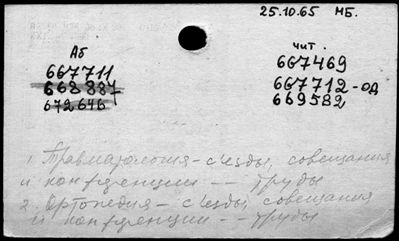 25.10.65 МБ.
Аб
667711
668887
672646
чит.
667469
667712-од
669582
1. Травматология - съезды, совещания
и конференции -- труды
2. Ортопедия - съезды, совещания
и конференции -- труды